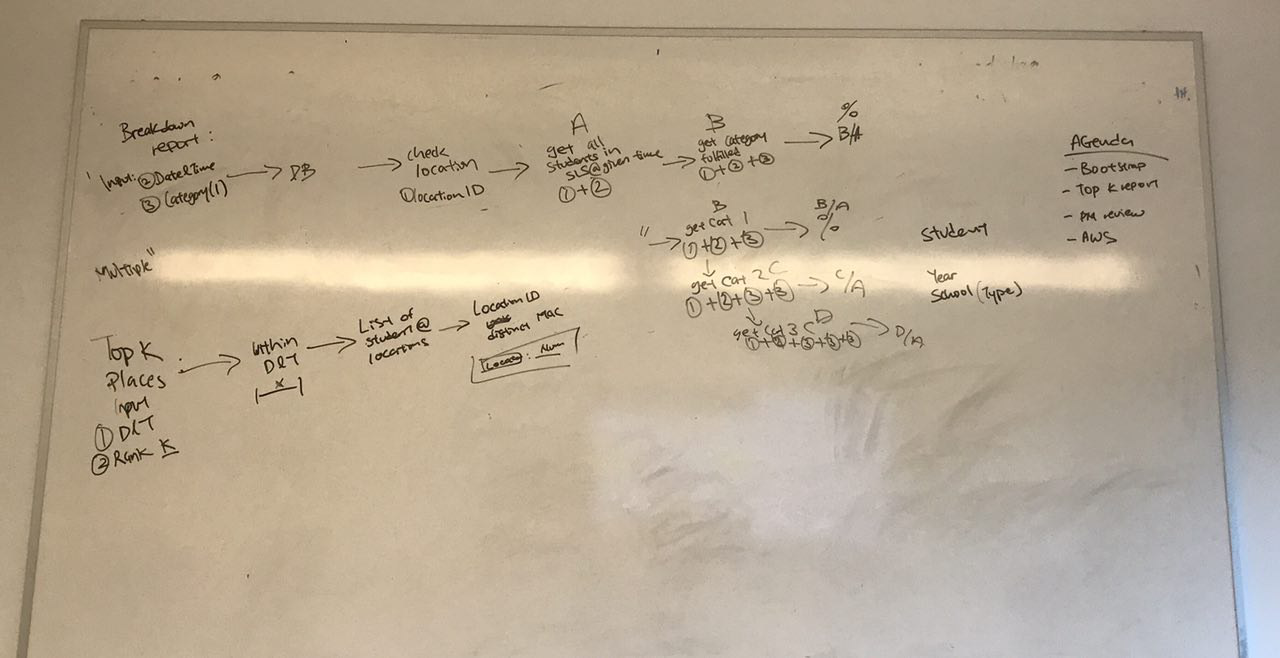 Breakdown
report :
Input: ② Date&Time
③ Category(1)
DB
check
location
① location ID
A
get all
students in
SIS@given time
① + ②
B
get category
fulfilled
① + ② + ③
%
B/A
Multiple"
"
B
get cat 1
① + ② + ③
B/A
%
get cat 2 C
① + ② + ③ + ③
C/A
get cat 3 D
① + ② + ③ + ③ + ③
D/A
Student
Year
School (Type)
AGenda
- Bootstrap
- Top K report
- PM review
- AWS
Top K
Places
Input
① D&T
② Rank K
within
D&T
x
List of
student @
locations
Location ID
distinct MAC
Location : Num